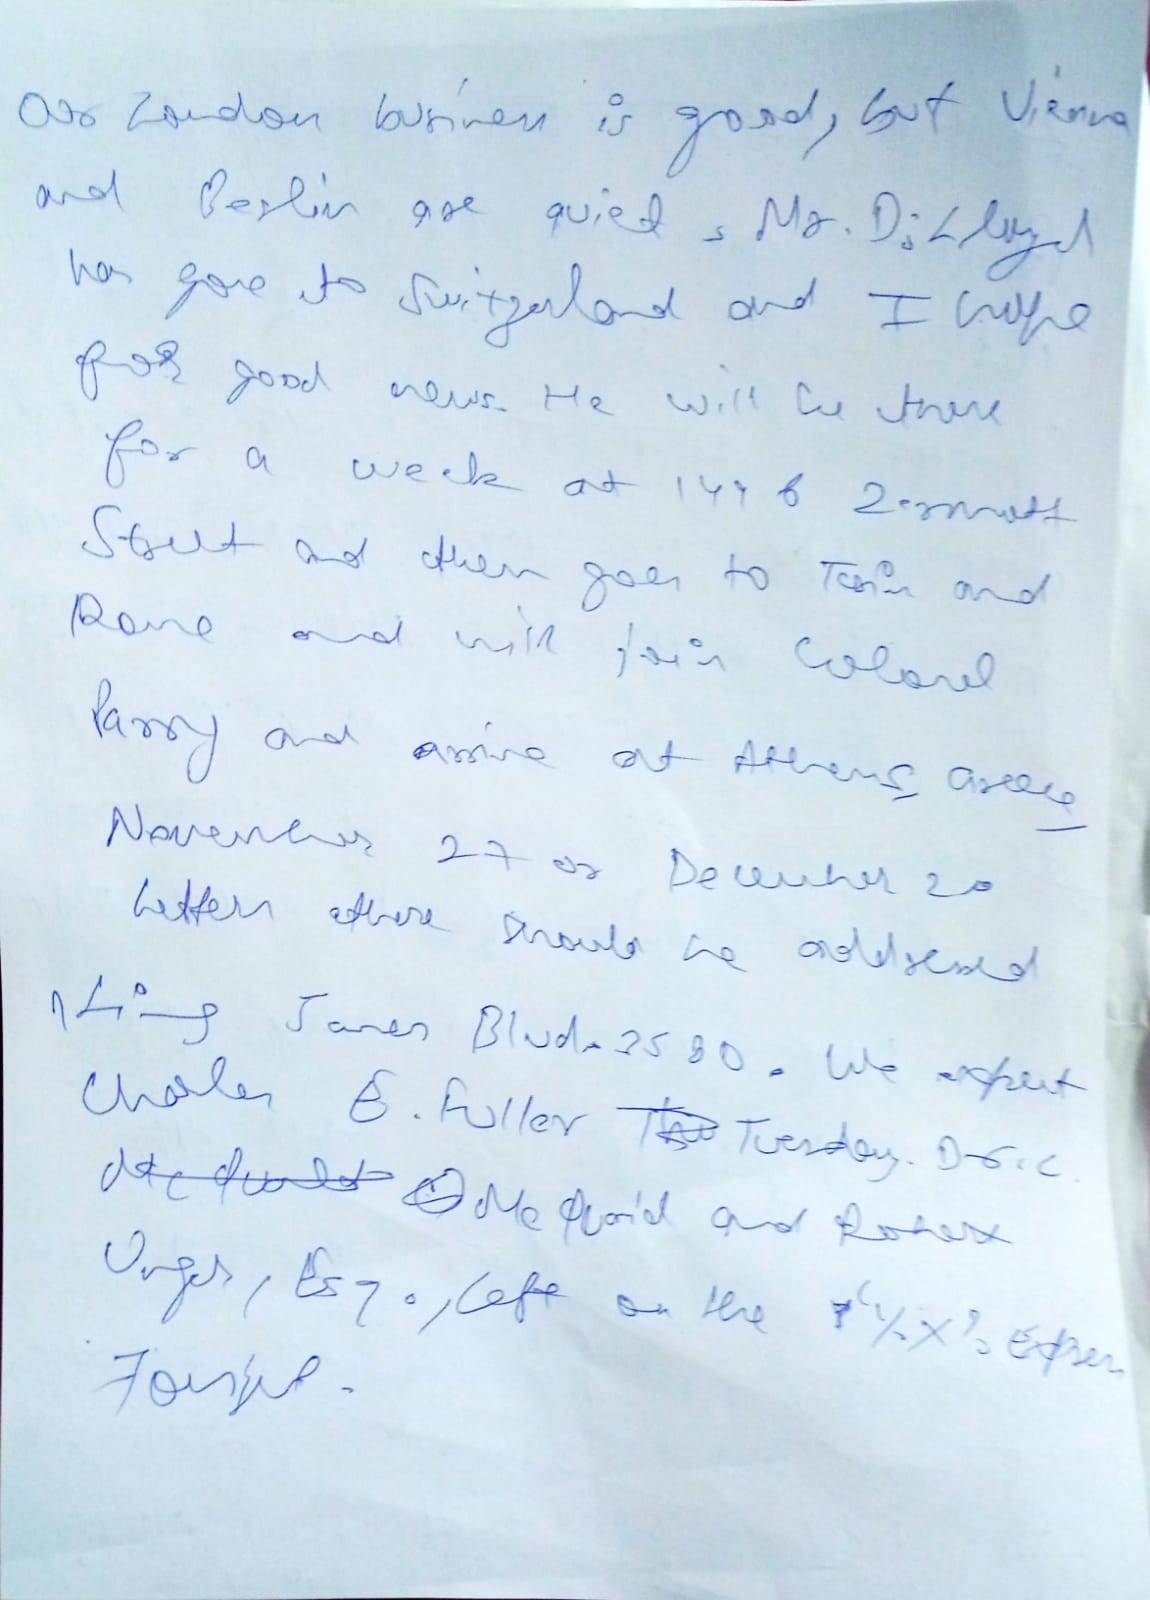 Our London business is good, but Vienna
and Berlin are quied, Mr. D. Lloyd
has gone to Switzerland and I hope
for good news. He will be there
for a week at 1496 Zermott
Street and then goes to Turin and
Rome and will join Colonel
Parry and arrive at Athens, Greece
November 27 or December 20
Letters there should be addressed
King James Blvd. 3580. We expect
Charles E. Fuller Tuesday. Dr. C.
McQuaid and Robert
Unger, Esq., left on the "Y.X", Express
Tonight.